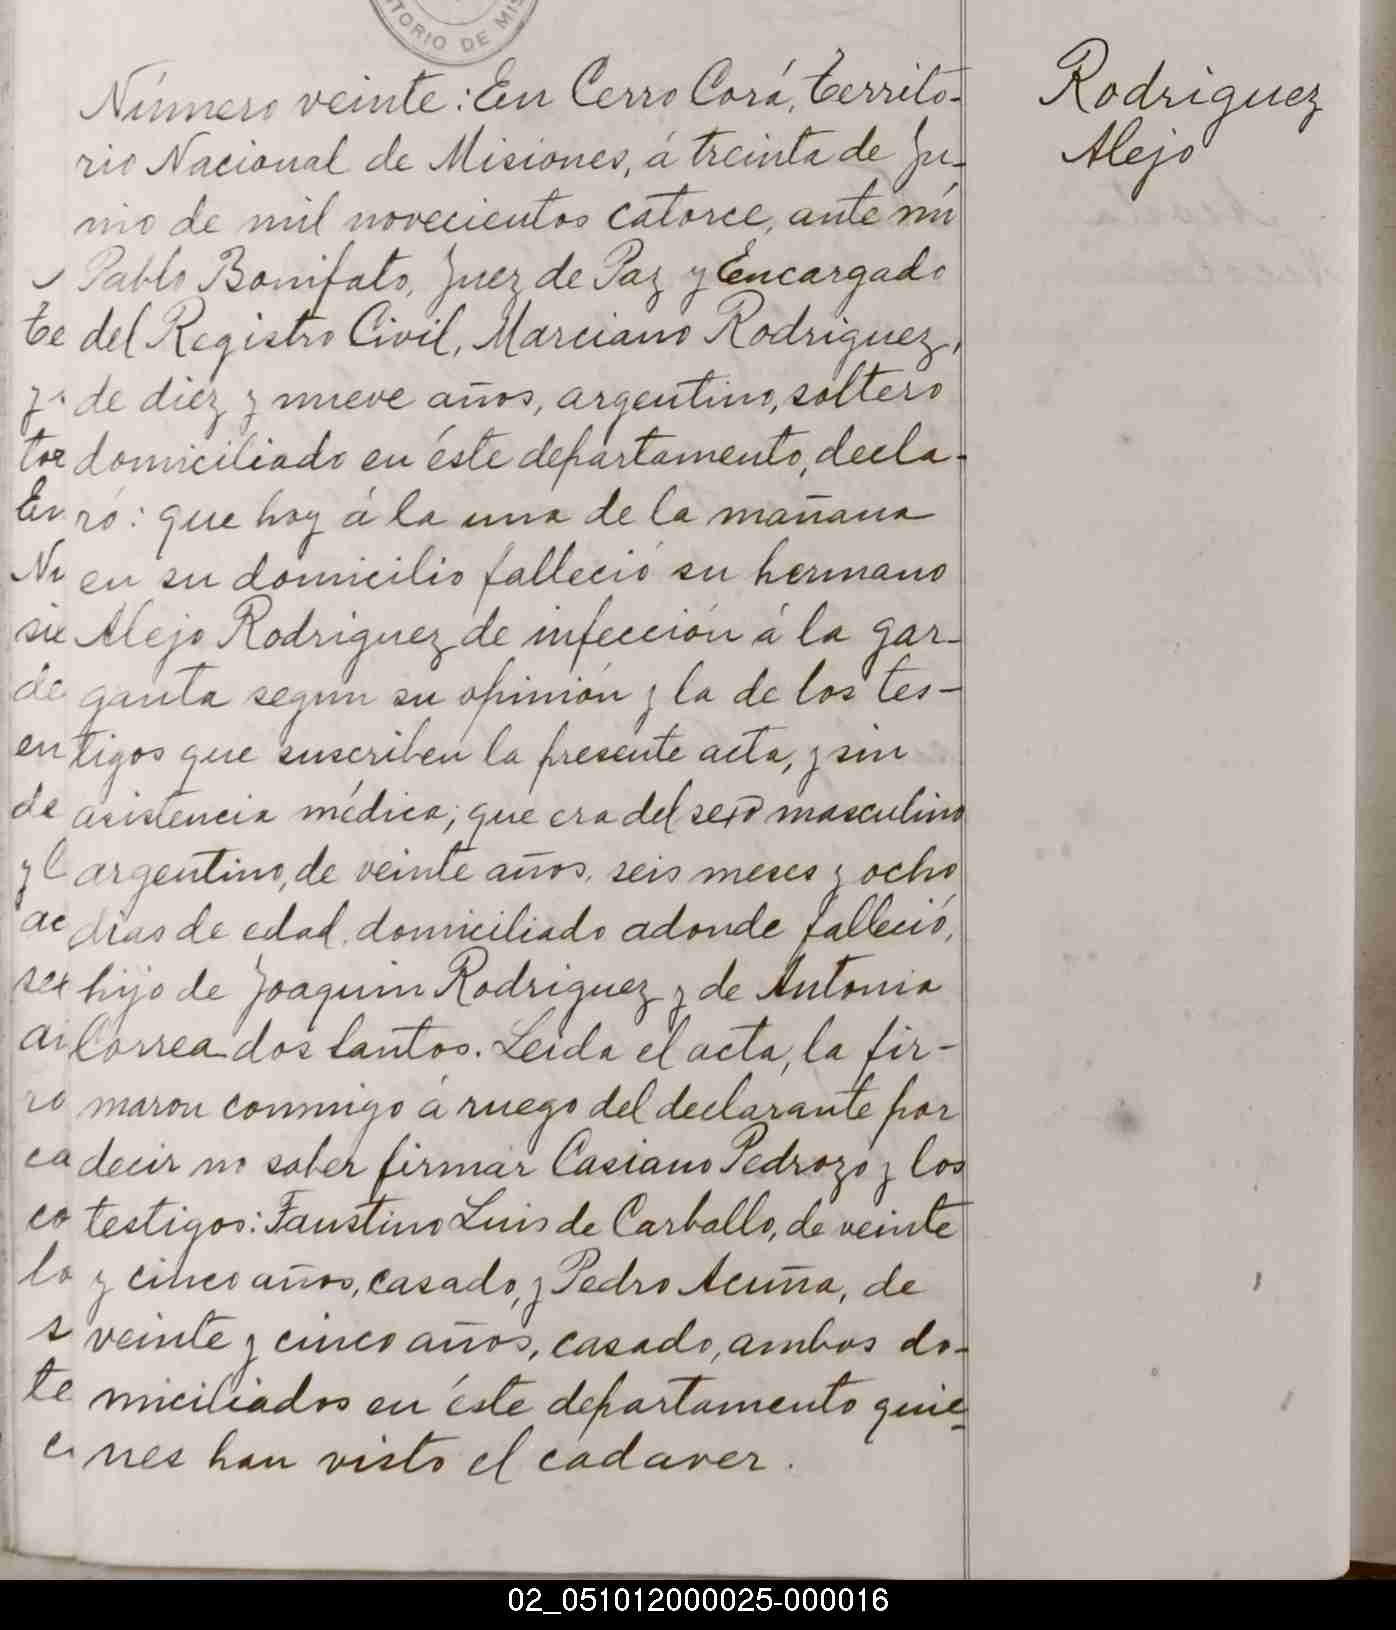 TORIO DE MIS
Número veinte: En Cerro Corá, Territo-
rio Nacional de Misiones, á treinta de Ju-
nio de mil novecientos catorce, ante mí
Pablo Bonifato, Juez de Paz y Encargado
del Registro Civil, Marciano Rodriguez,
de diez y nueve años, argentino, soltero
domiciliado en éste departamento, decla-
ró: que hoy á la una de la mañana
en su domicilio falleció su hermano
Alejo Rodriguez de infección á la gar-
ganta segun su opinión y la de los tes-
tigos que suscriben la presente acta, y sin
asistencia médica; que era del sexo masculino
argentino, de veinte años, seis meses y ocho
dias de edad, domiciliado adonde falleció,
hijo de Joaquin Rodriguez y de Antonia
Correa dos Santos. Leida el acta, la fir-
maron conmigo á ruego del declarante por
decir no saber firmar Casiano Pedrozo y los
testigos: Faustino Luis de Carballo, de veinte
y cinco años, casado, y Pedro Acuña, de
veinte y cinco años, casado, ambos do-
miciliados en éste departamento quie-
nes han visto el cadaver.
Rodriguez
Alejo
te
tor
En
sex
de
en
de
y l
ac
sex
ai
ro
ca
co
lo
s
te
02_051012000025-000016